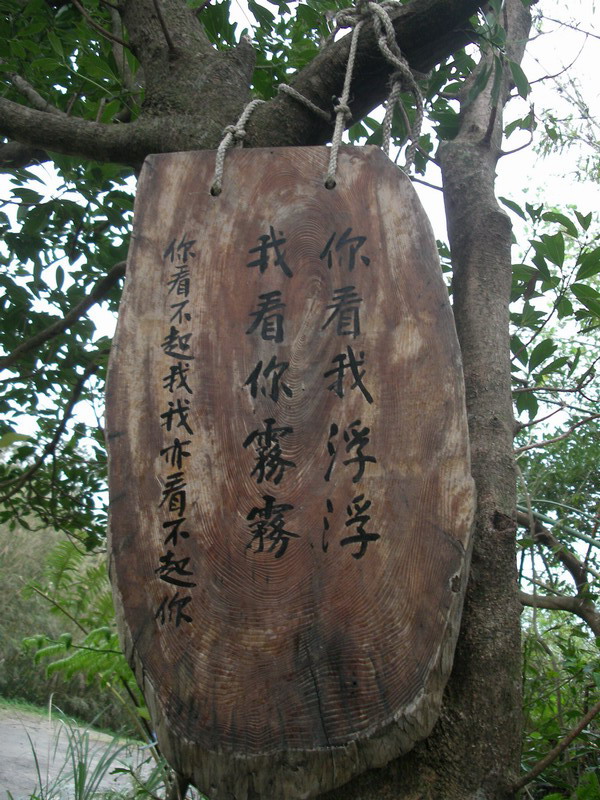 你看我浮浮
我看你霧霧
你看不起我我亦看不起你